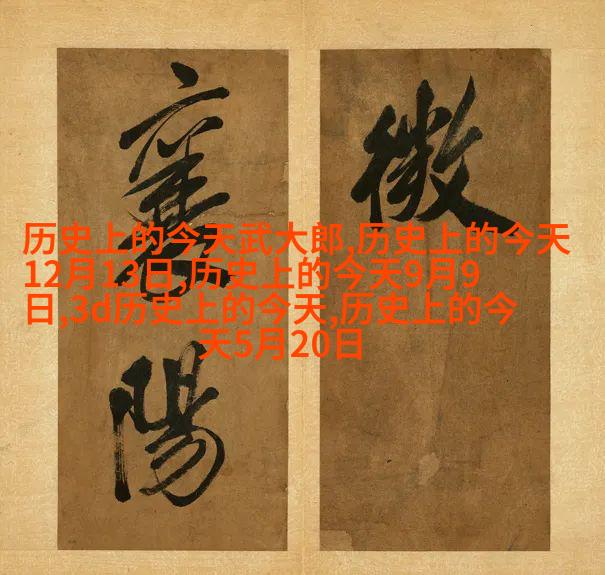 微
襄
陽
历史上的今天武大郎,历史上的今天
12月13日,历史上的今天9月9
日,3d历史上的今天,历史上的今
天5月20日